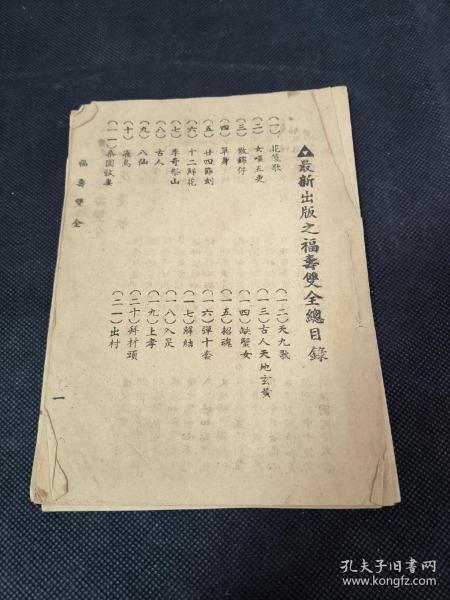 最新出版之福壽雙全總目錄
(一)花箋歌
(二)女嘆五更
(三)散錦仔
(四)單身
(五)廿四節刻
(六)十二鮮花
(七)李奇祭山
(八)古人
(九)八仙
(十)雀鳥
(一一)桑園試妻
(一二)天九歌
(一三)古人天地玄黃
(一四)缺蟹女
(一五)招魂
(一六)彈十套
(一七)解結
(一八)入芪
(一九)上孝
(二十)斜村頭
(二一)出村
福壽雙全
一
孔夫子旧书网
www.kongfz.com